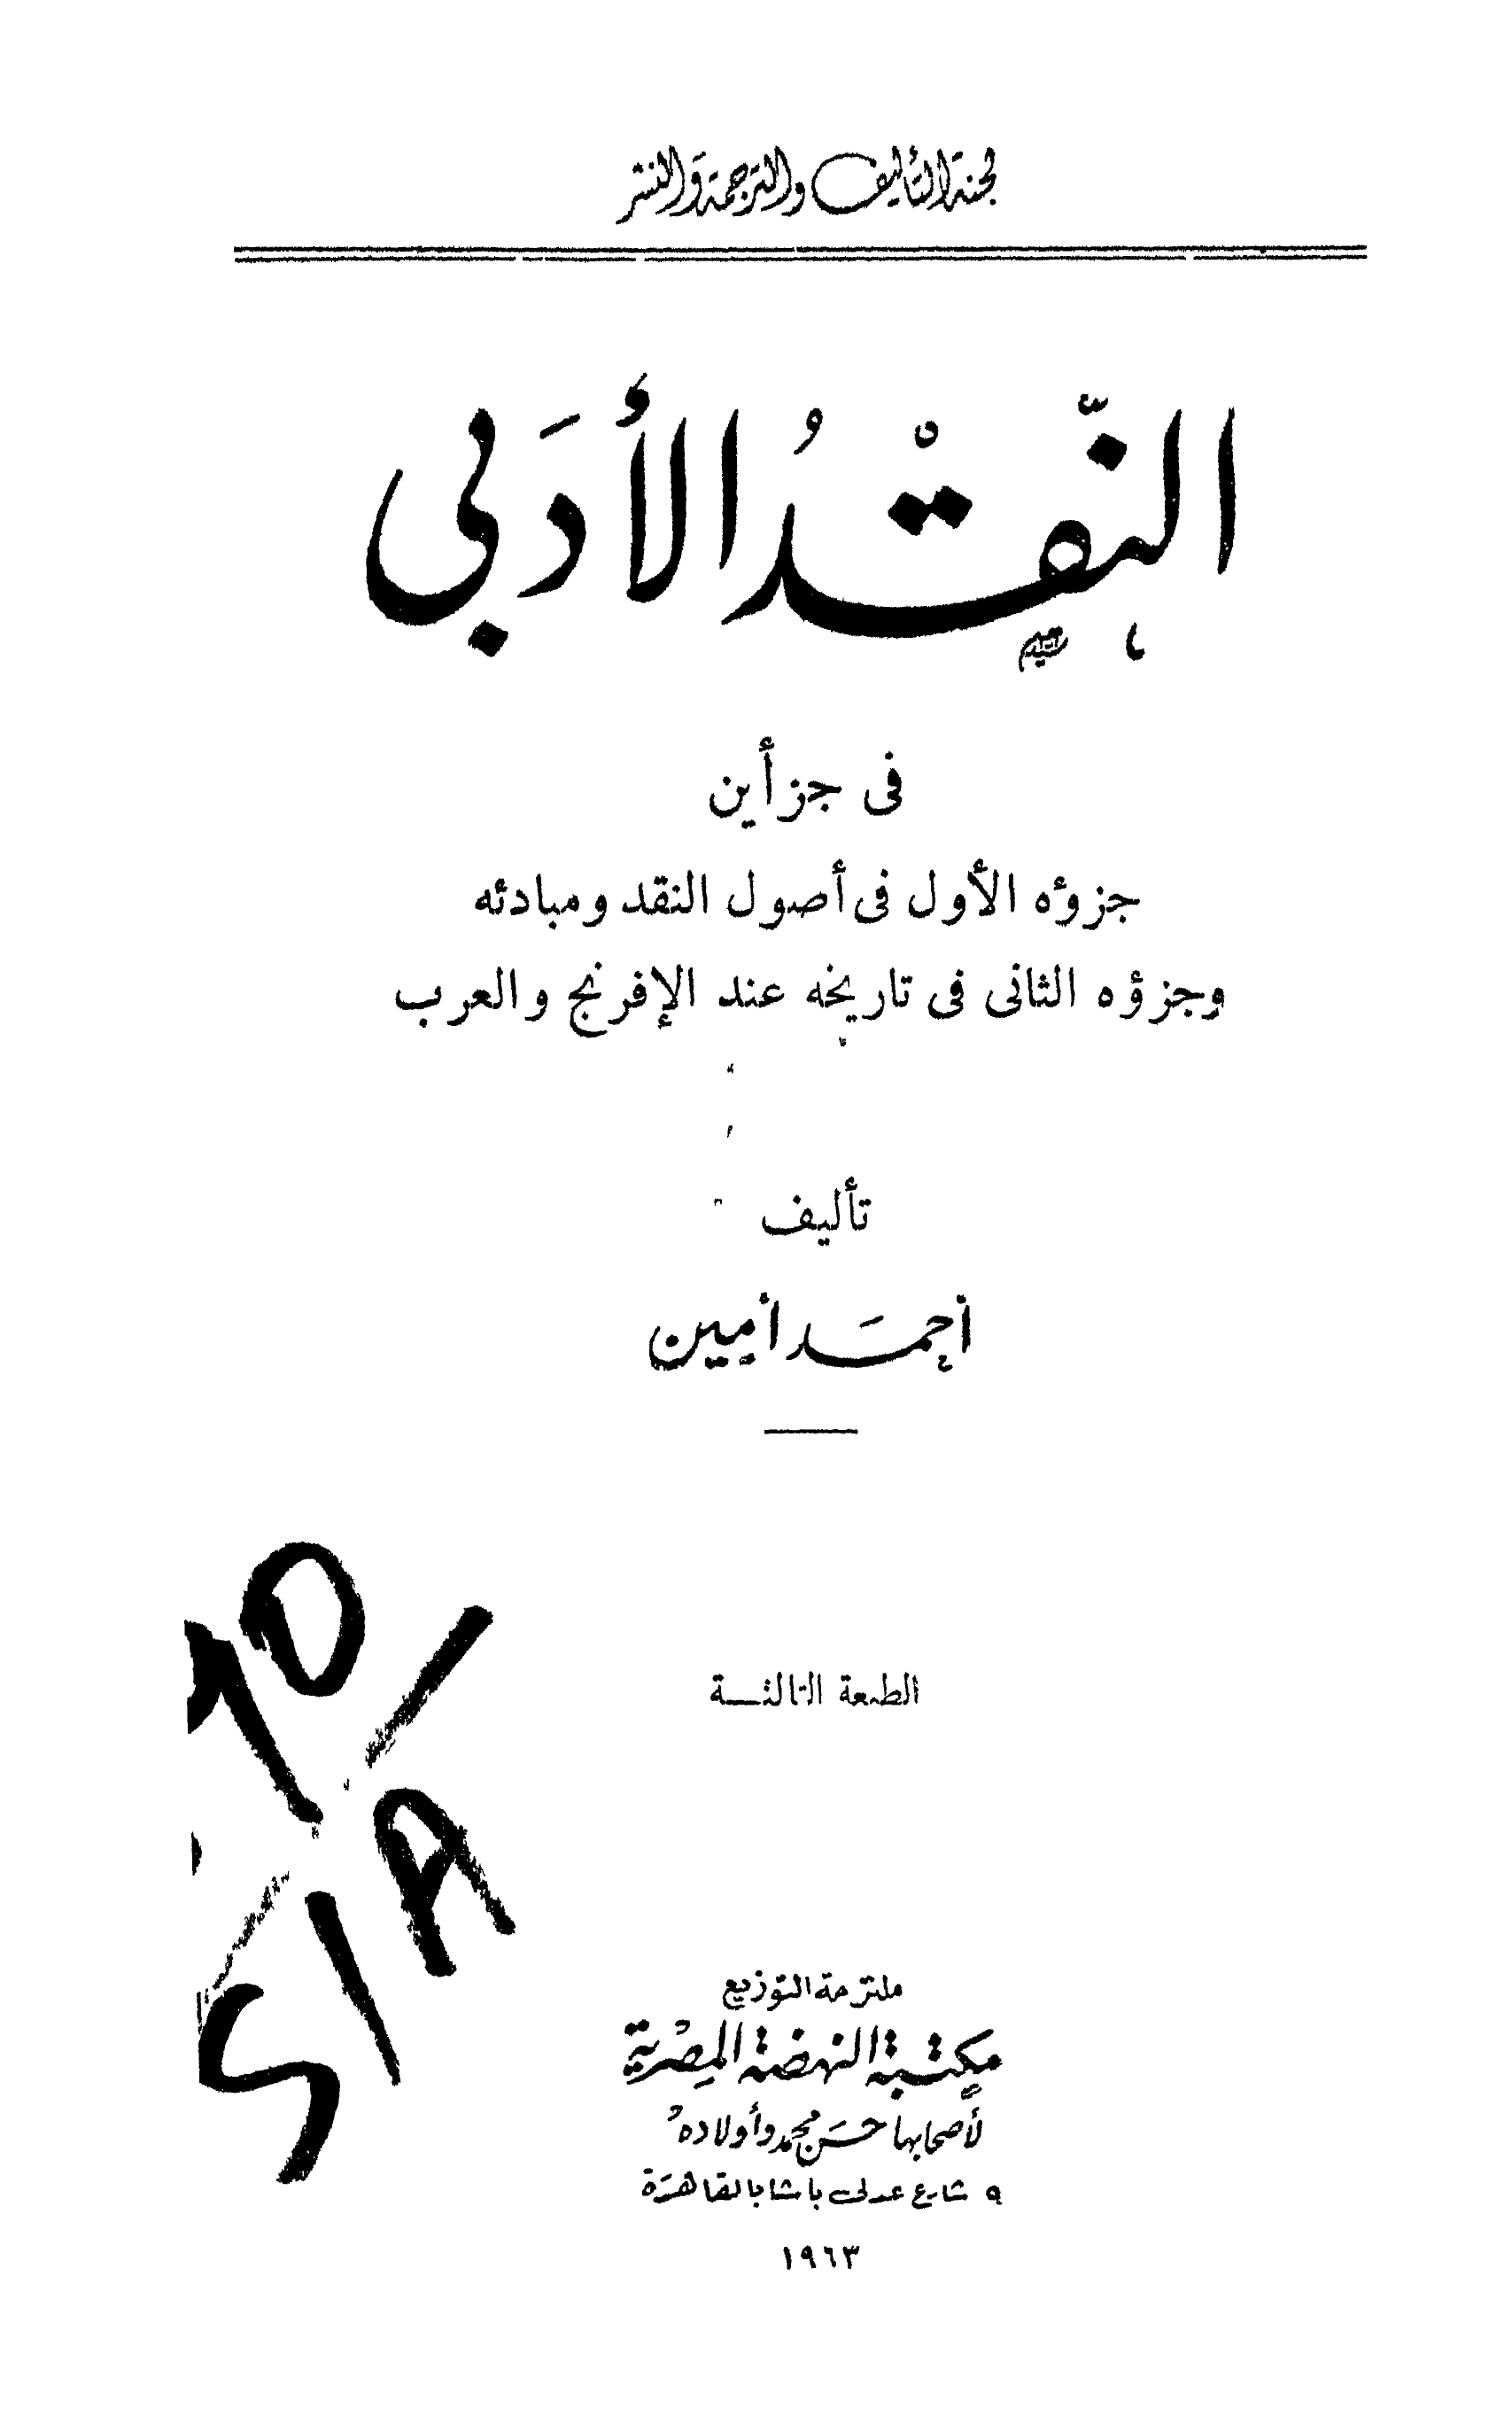 لجنة التأليف والترجمة والنشر
النّقْدُ الأدَبي
فى جزأين
جزوؤه الأول فى أصول النقد ومبادئه
وجزؤه الثانى فى تاريخه عند الإفرنج والعرب
تأليف
أحمَد أمين
الطبعة الثالثـــة
ملتزمة التوزيع
مكتبة النهضة المِصْرية
لأصحابها حسَن محمد وأولادهُ
٩ شارع عدلى باشا بالقاهرَة
١٩٦٣